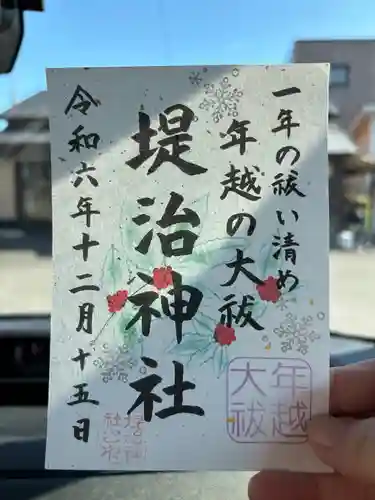 一年の祓い清め
年越の大祓
堤治神社
令和六年十二月十五日
年越
大祓